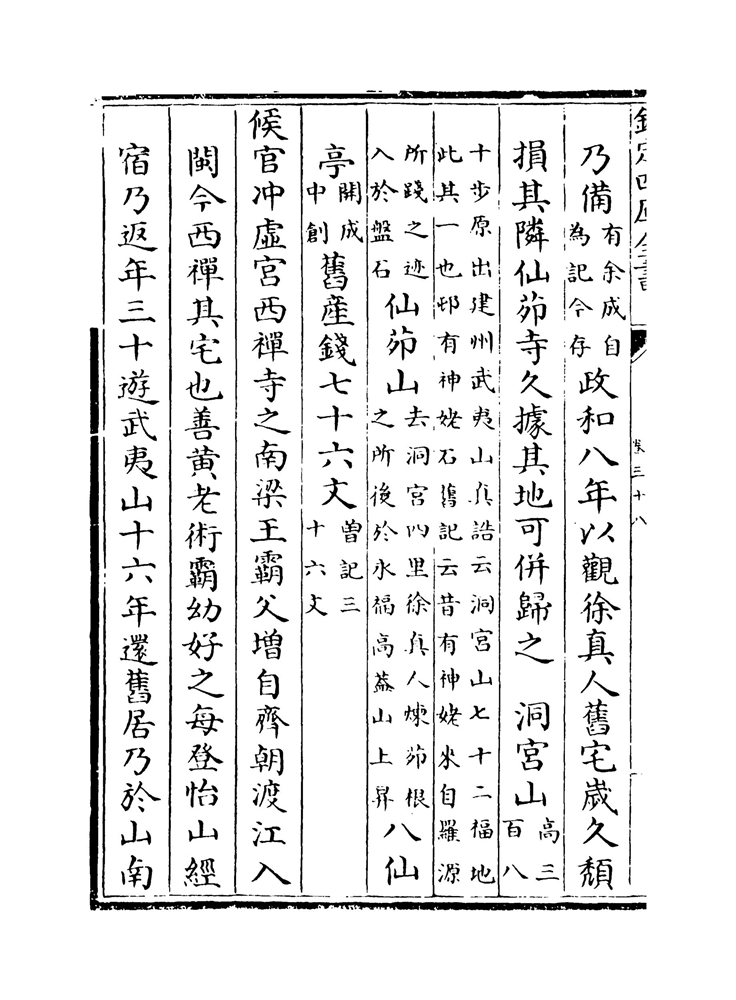 欽定四庫全書
卷三十八
乃備有余成自為記今存政和八年以觀徐真人舊宅歲久頹
損其隣仙茆寺久據其地可併歸之　洞宮山高三百八
十步原出建州武夷山真誥云洞宮山七十二福地
此其一也邨有神姥石舊記云昔有神姥来自羅源
所踐之迹入於盤石仙茆山去洞宮四里徐真人煉茆根之所後於永福高葢山上昇八仙
亭開成中創舊産錢七十六文曽記三十六文
候官冲虛宮西禪寺之南梁王霸父增自齊朝渡江入
閩今西禪其宅也善黄老術霸幼好之每登怡山經
宿乃返年三十遊武夷山十六年還舊居乃於山南